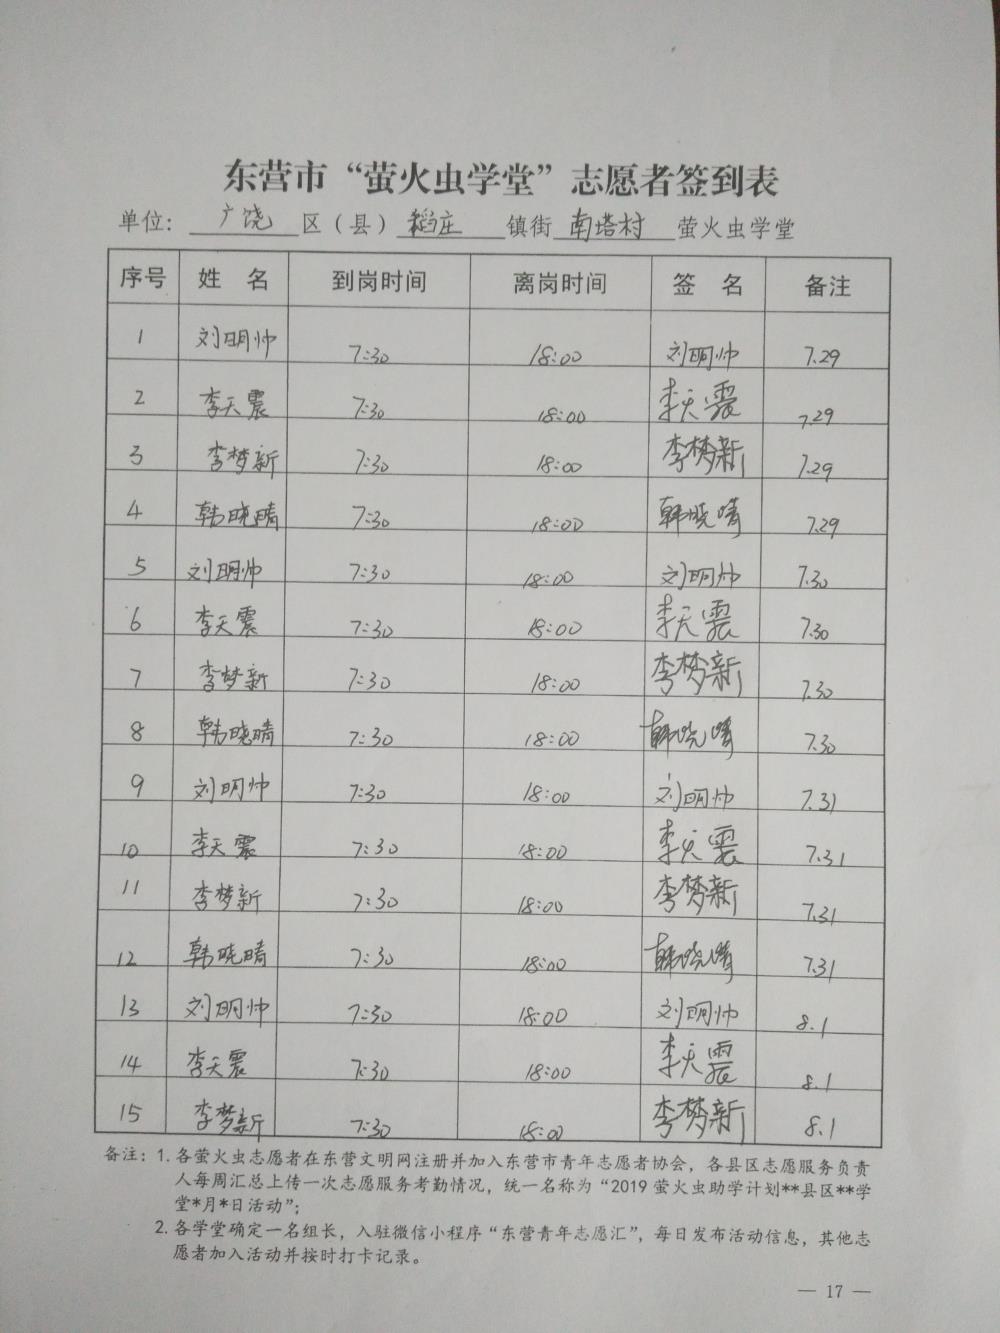 东营市“萤火虫学堂”志愿者签到表
单位: 广饶 区(县) 稻庄 镇街 南塔村 萤火虫学堂
序号 姓 名 到岗时间 离岗时间 签 名 备注
1 刘明帅 7:30 18:00 刘明帅 7.29
2 李天震 7:30 18:00 李天震 7.29
3 李梦新 7:30 18:00 李梦新 7.29
4 韩晓晴 7:30 18:00 韩晓晴 7.29
5 刘明帅 7:30 18:00 刘明帅 7.30
6 李天震 7:30 18:00 李天震 7.30
7 李梦新 7:30 18:00 李梦新 7.30
8 韩晓晴 7:30 18:00 韩晓晴 7.30
9 刘明帅 7:30 18:00 刘明帅 7.31
10 李天震 7:30 18:00 李天震 7.31
11 李梦新 7:30 18:00 李梦新 7.31
12 韩晓晴 7:30 18:00 韩晓晴 7.31
13 刘明帅 7:30 18:00 刘明帅 8.1
14 李天震 7:30 18:00 李天震 8.1
15 李梦新 7:30 18:00 李梦新 8.1
备注: 1. 各萤火虫志愿者在东营文明网注册并加入东营市青年志愿者协会，各县区志愿服务负责
人每周汇总上传一次志愿服务考勤情况，统一名称为“2019 萤火虫助学计划**县区**学
堂*月*日活动”;
2. 各学堂确定一名组长，入驻微信小程序“东营青年志愿汇”，每日发布活动信息，其他志
愿者加入活动并按时打卡记录。
— 17 —